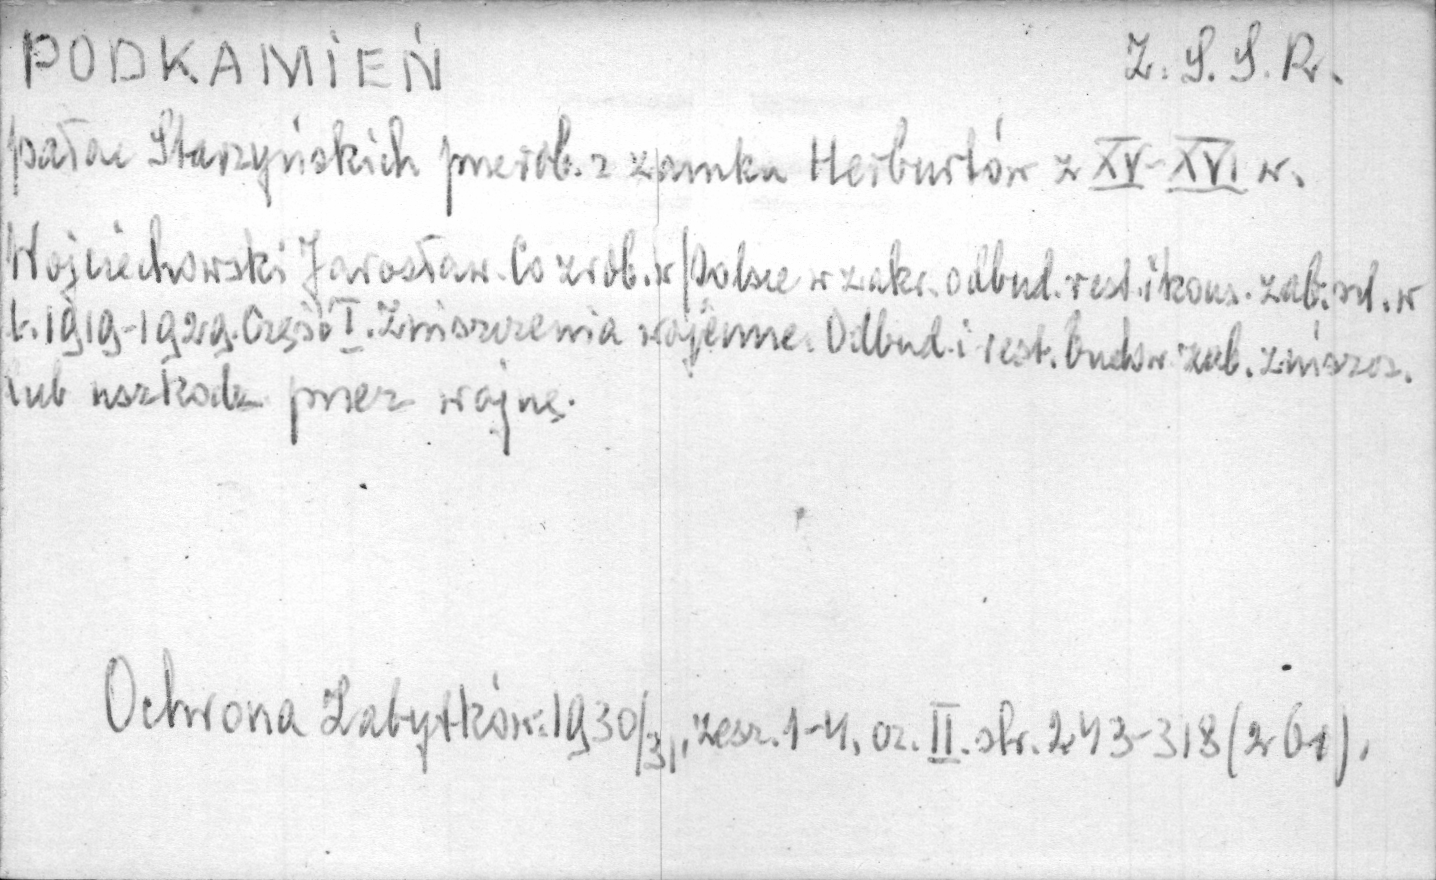 PODKAMIEŃ Z.S.S.R.
pałac Starzyńskich przerob. z zamku Herburtów z XV-XVI w.
Wojciechowski Jarosław. Co zrob. w Polsce w zakr. odbud. rest. i kons. zab. szt. w
l. 1919-1929. Część I. Zniszczenia wojenne. Odbud. i rest. budow. zab. zniszcz.
lub uszkodz przez wojnę.
Ochrona Zabytków. 1930/31, zesz. 1-4, cz. II. str. 243-318 (261).